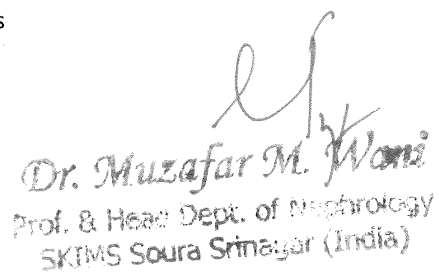 s
Dr. Muzafar M. Wani
Prof. & Head Dept. of Nephrology
SKIMS Soura Srinagar (India)